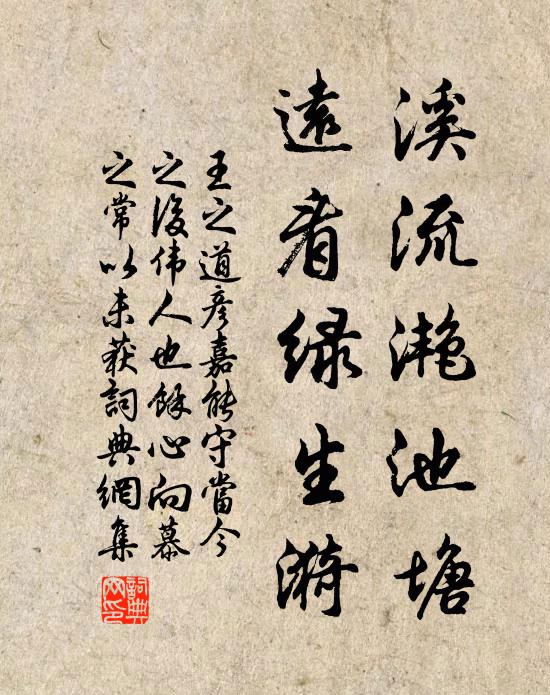 溪流滟池塘
遠看绿生漪
王之道彦嘉能守當今
之後伟人也餘心向慕
之常以未获詞典網集
詞典網印